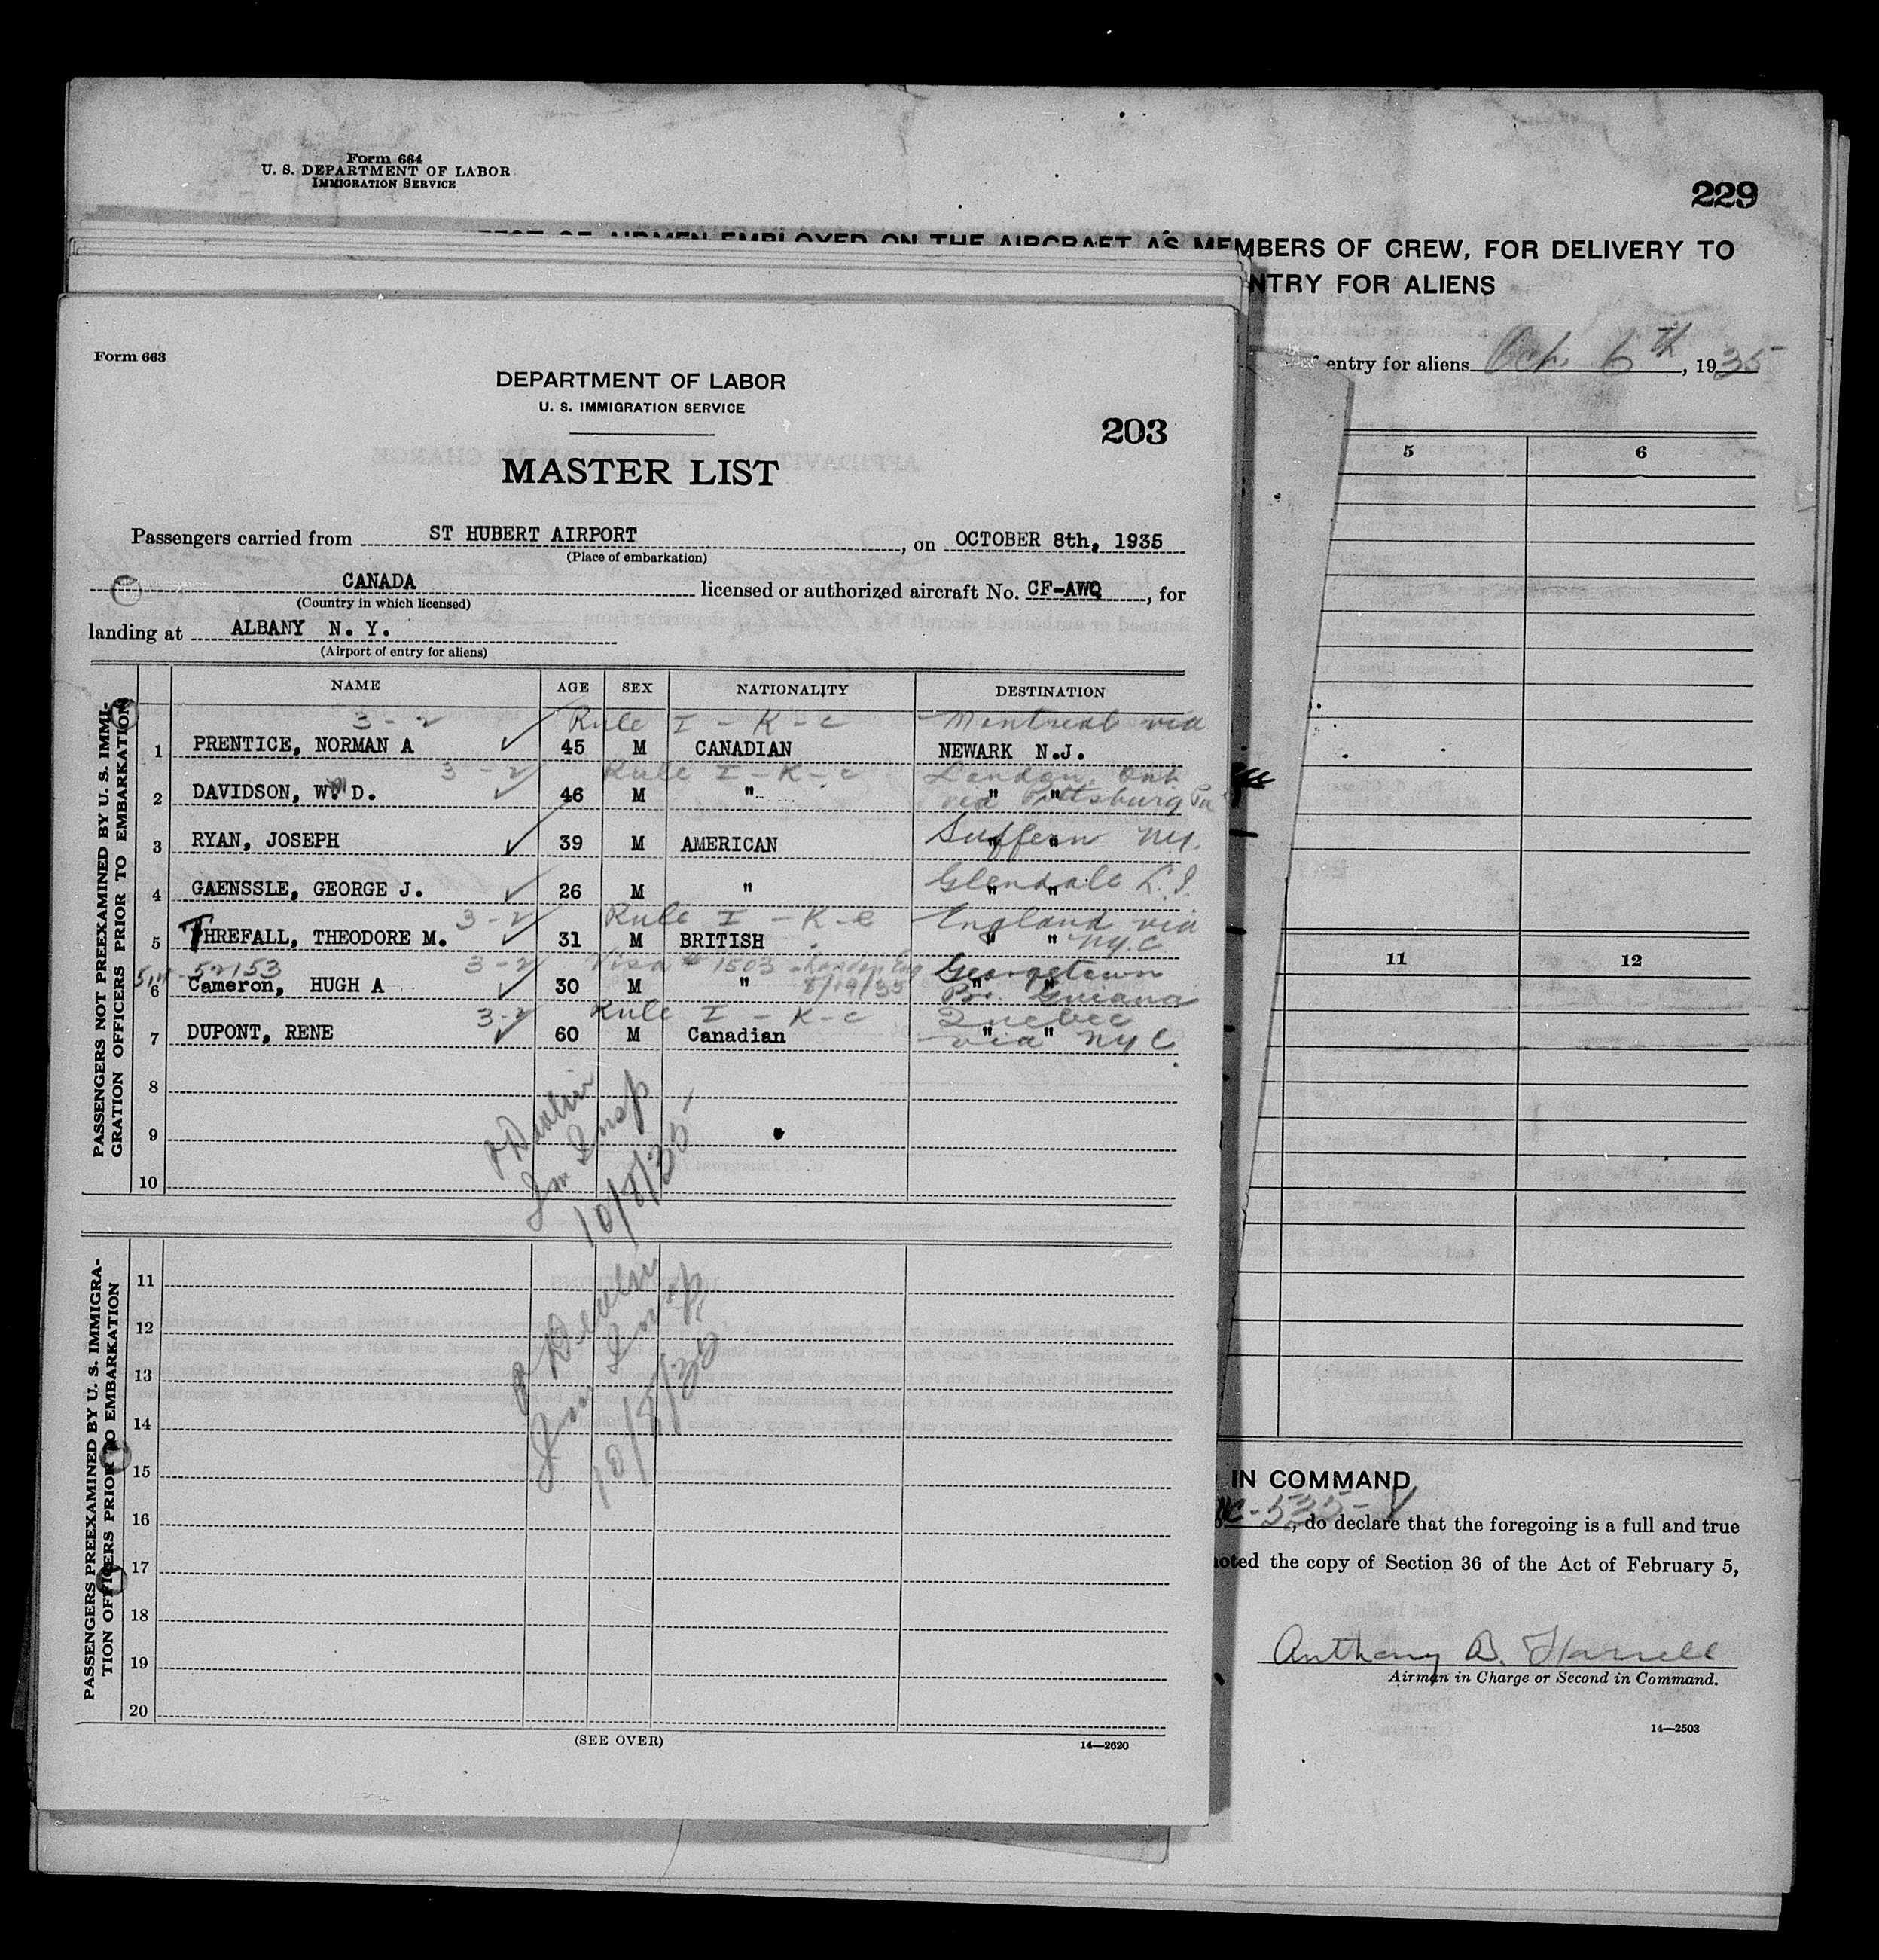 Form 664
U. S. DEPARTMENT OF LABOR
IMMIGRATION SERVICE
229
AIRMEN EMPLOYED ON THE AIRCRAFT AS MEMBERS OF CREW, FOR DELIVERY TO
NTRY FOR ALIENS
entry for aliens Oct. 6th, 1935
5 6
11 12
IN COMMAND
NC-535-V, do declare that the foregoing is a full and true
noted the copy of Section 36 of the Act of February 5,
Anthony B.
Airman in Charge or Second in Command.
14—2503
Form 663
DEPARTMENT OF LABOR
U. S. IMMIGRATION SERVICE
203
MASTER LIST
Passengers carried from ST HUBERT AIRPORT, on OCTOBER 8th, 1935
(Place of embarkation)
CANADA licensed or authorized aircraft No. CF-AWQ, for
(Country in which licensed)
landing at ALBANY N. Y.
(Airport of entry for aliens)
PASSENGERS NOT PREEXAMINED BY U. S. IMMI-
GRATION OFFICERS PRIOR TO EMBARKATION
NAME AGE SEX NATIONALITY DESTINATION
3-2 Rule I-K-c Montreal via
1 PRENTICE, NORMAN A 45 M CANADIAN NEWARK N.J.
3-2 Rule I-K-c London, Ont
2 DAVIDSON, W. D. 46 M " " " via Pittsburg Pa
Suffern N.Y.
3 RYAN, JOSEPH 39 M AMERICAN " "
Glendale L.I.
4 GAENSSLE, GEORGE J. 26 M " " "
3-2 Rule I-K-c England via
5 THREFALL, THEODORE M. 31 M BRITISH " " N.Y.C
52153 3-2 Visa # 1503 London Eng Georgetown
6 Cameron, HUGH A 30 M " 8/19/35 " " Br. Guiana
3-2 Rule I-K-c Quebec
7 DUPONT, RENE 60 M Canadian " " via NYC
8
9
10
Devlin
Im Insp
10/8/35
PASSENGERS PREEXAMINED BY U. S. IMMIGRA-
TION OFFICERS PRIOR TO EMBARKATION
11
12
13
14
15
16
17
18
19
20
Devlin
Im Insp
10/8/35
(SEE OVER)
14—2620